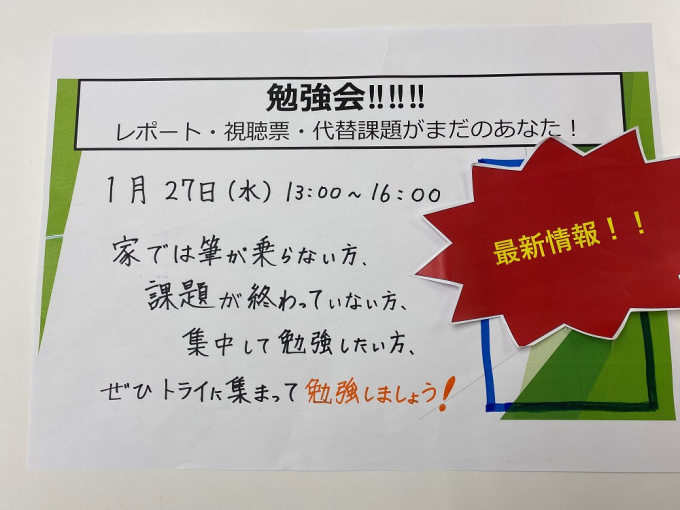 勉強会!!!!!!
レポート・視聴票・代替課題がまだのあなた！
1月 27日(水) 13:00～16:00
家では筆が乗らない方、
課題が終わっていない方、
集中して勉強したい方、
ぜひトライに集まって勉強しましょう!
最新情報！！